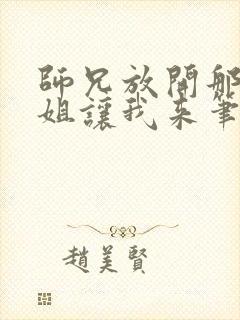 師兄放開那
姐讓我来筆
趙美賢